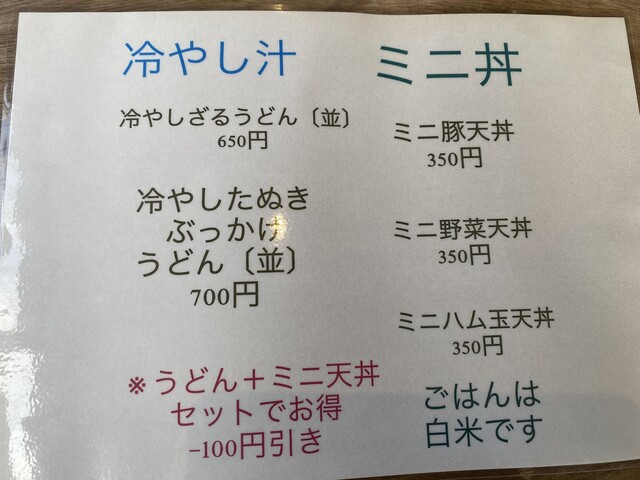 冷やし汁
冷やしざるうどん〔並〕
650円
冷やしたぬき
ぶっかけ
うどん〔並〕
700円
※うどん＋ミニ天丼
セットでお得
-100円引き
ミニ丼
ミニ豚天丼
350円
ミニ野菜天丼
350円
ミニハム玉天丼
350円
ごはんは
白米です